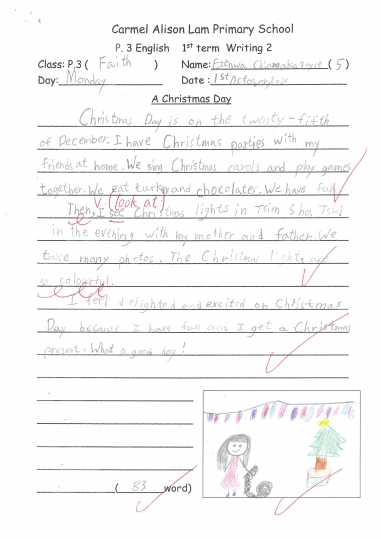 Carmel Alison Lam Primary School
P. 3 English 1st term Writing 2
Class: P.3 ( Faith ) Name: Ezenwa Chiamaka Joyce ( 5 )
Day: Monday Date : 1st
A Christmas Day
Christmas Day is on the twenty-fifth
of December. I have Christmas parties with my
friends at home. We sing Christmas carols and play games
together. We eat turkey and chocolates. We have fun
V. (look at)
Then, I see Christmas lights in Tsim Sha Tsui
in the evening with my mother and father. We
take many photos. The Christmas lights are
so colourful.
I feel delighted and excited on Christmas
Day because I have fun and I get a Christmas
present. What a good day!
( 83 word)